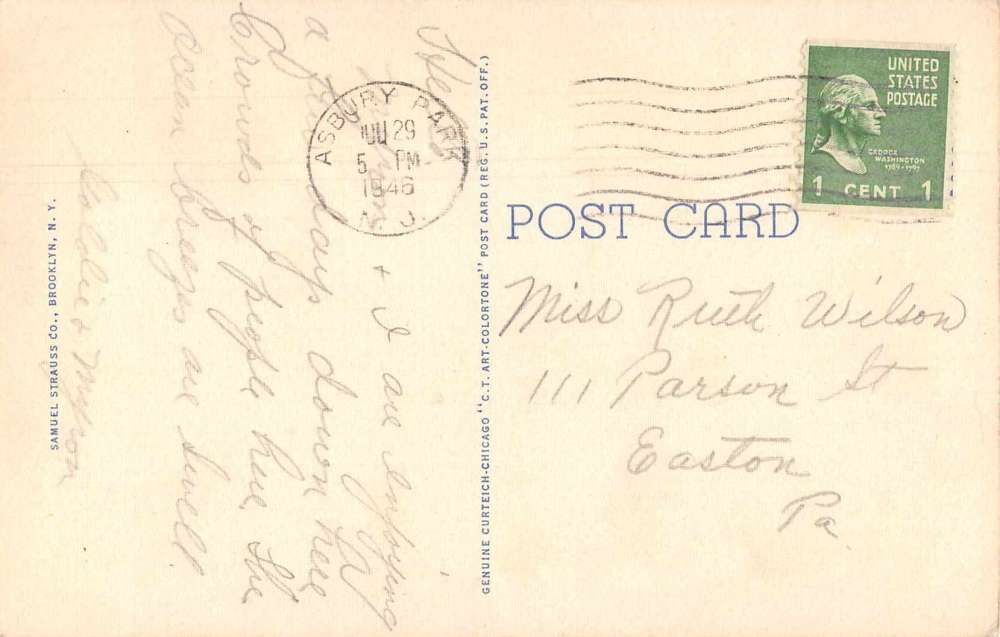 Hello,
Myron + I are enjoying
a few days down here
Crowds of people here. The
ocean breezes are swell
& Myron
SAMUEL STRAUSS CO., BROOKLYN, N. Y.
GENUINE CURTEICH-CHICAGO "C.T. ART-COLORTONE" POST CARD (REG. U.S. PAT. OFF.)
ASBURY PARK
29
5 PM
1946
N. J.
UNITED
STATES
POSTAGE
GEORGE
WASHINGTON
1789-1797
1 CENT 1
POST CARD
Miss Ruth Wilson
111 Parson St
Easton
Pa